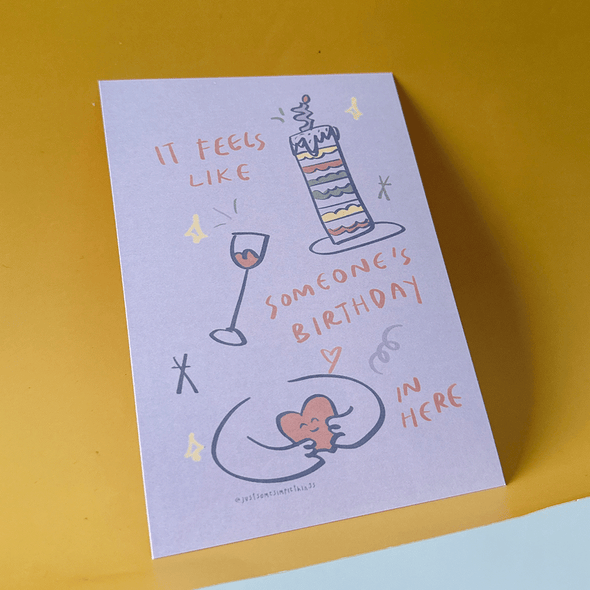 IT FEELS
LIKE
SOMEONE'S
BIRTHDAY
IN
HERE